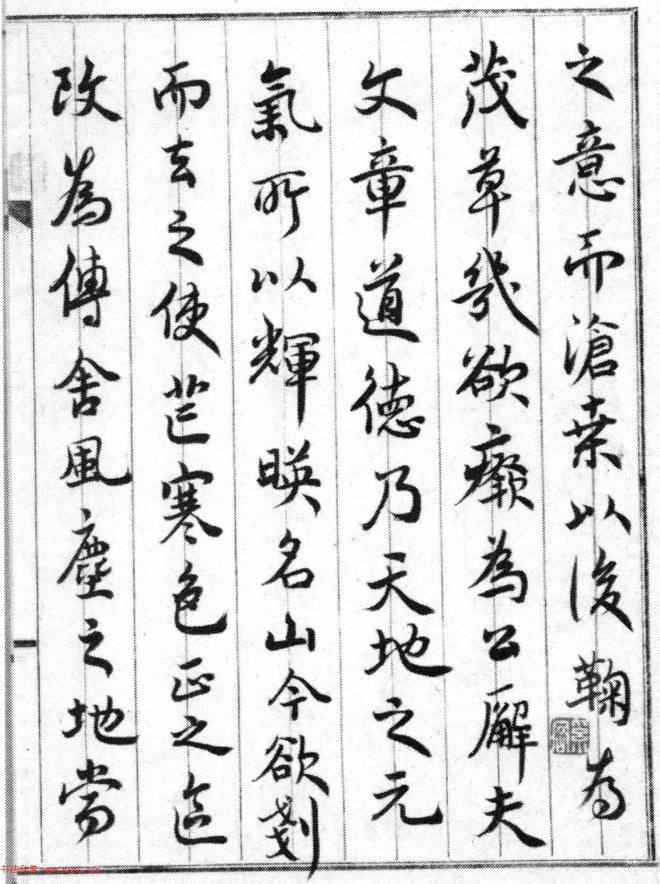 之意而滄桑以後鞠為
茂草幾欲廢為公廨夫
文章道德乃天地之元
氣所以輝暎名山今欲剗
而去之使芒寒色正之區
改為傳舍風塵之地當